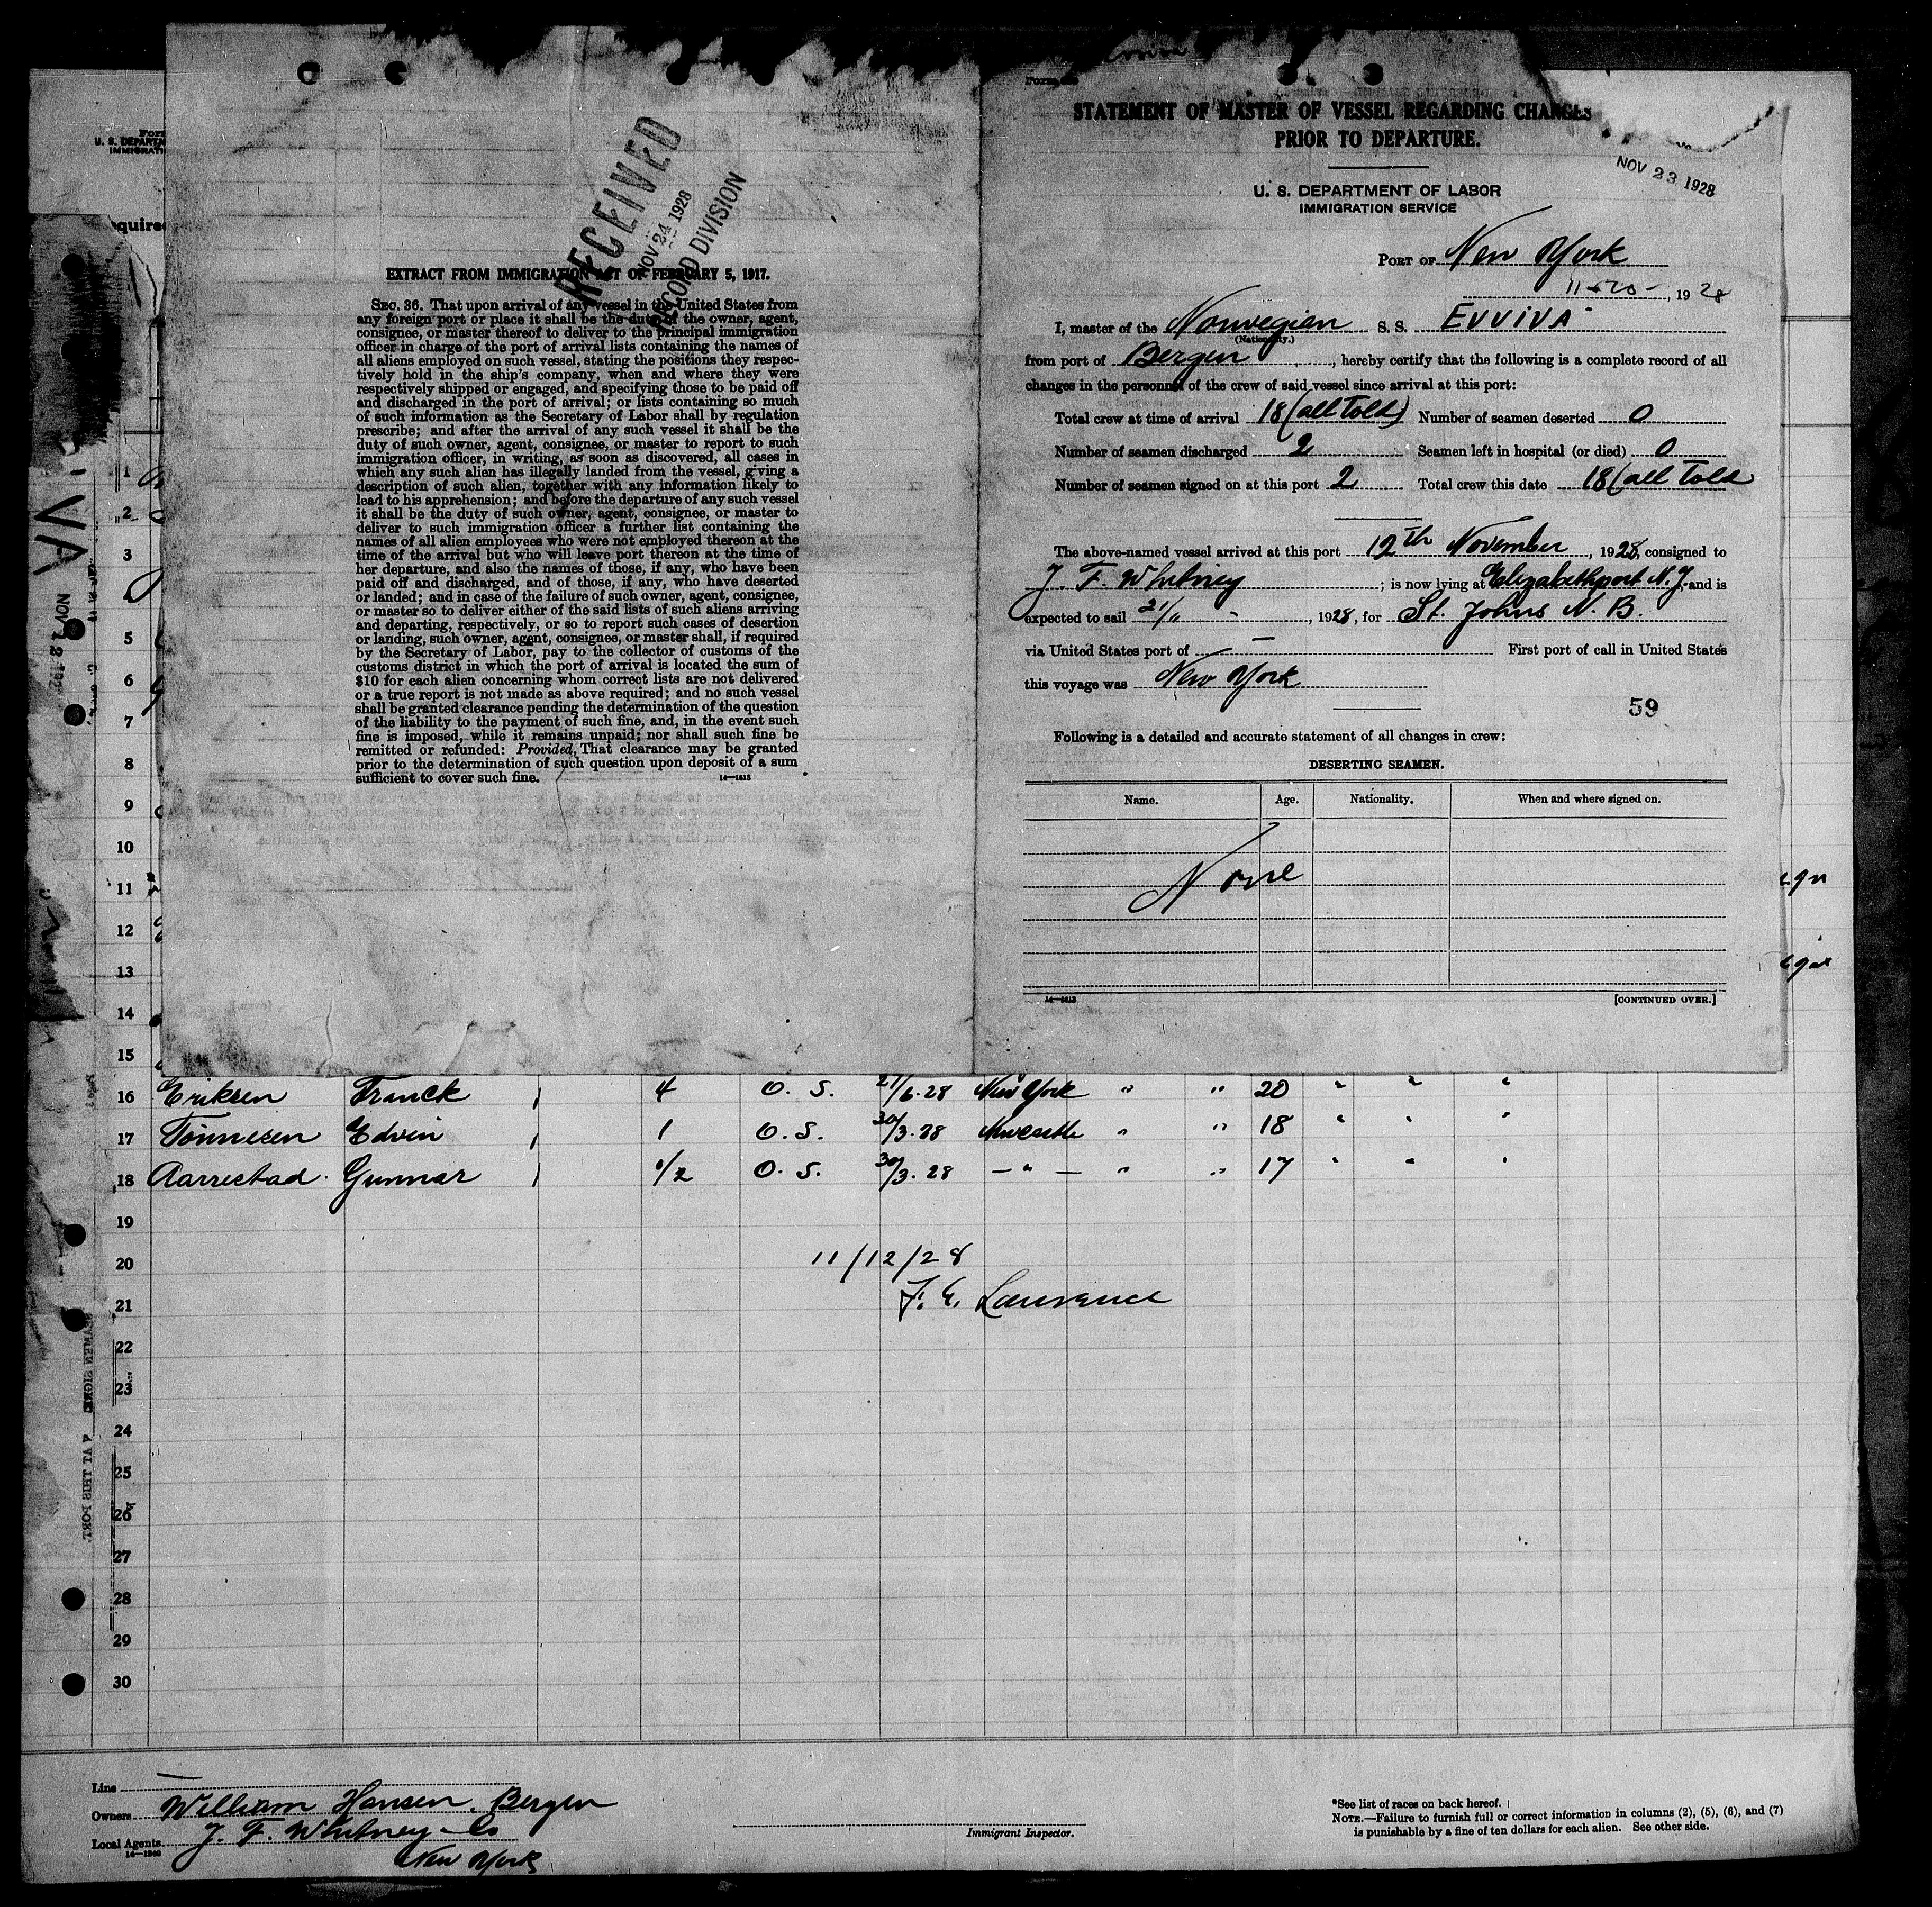 RECEIVED
NOV 24 1928
RECORD DIVISION
EXTRACT FROM IMMIGRATION ACT OF FEBRUARY 5, 1917.
SEC. 36. That upon arrival of any vessel in the United States from
any foreign port or place it shall be the duty of the owner, agent,
consignee, or master thereof to deliver to the principal immigration
officer in charge of the port of arrival lists containing the names of
all aliens employed on such vessel, stating the positions they respec-
tively hold in the ship's company, when and where they were
respectively shipped or engaged, and specifying those to be paid off
and discharged in the port of arrival; or lists containing so much
of such information as the Secretary of Labor shall by regulation
prescribe; and after the arrival of any such vessel it shall be the
duty of such owner, agent, consignee, or master to report to such
immigration officer, in writing, as soon as discovered, all cases in
which any such alien has illegally landed from the vessel, giving a
description of such alien, together with any information likely to
lead to his apprehension; and before the departure of any such vessel
it shall be the duty of such owner, agent, consignee, or master to
deliver to such immigration officer a further list containing the
names of all alien employees who were not employed thereon at the
time of the arrival but who will leave port thereon at the time of
her departure, and also the names of those, if any, who have been
paid off and discharged, and of those, if any, who have deserted
or landed; and in case of the failure of such owner, agent, consignee,
or master so to deliver either of the said lists of such aliens arriving
and departing, respectively, or so to report such cases of desertion
or landing, such owner, agent, consignee, or master shall, if required
by the Secretary of Labor, pay to the collector of customs of the
customs district in which the port of arrival is located the sum of
$10 for each alien concerning whom correct lists are not delivered
or a true report is not made as above required; and no such vessel
shall be granted clearance pending the determination of the question
of the liability to the payment of such fine, and, in the event such
fine is imposed, while it remains unpaid; nor shall such fine be
remitted or refunded: Provided, That clearance may be granted
prior to the determination of such question upon deposit of a sum
sufficient to cover such fine. 14—1613
STATEMENT OF MASTER OF VESSEL REGARDING CHANGES
PRIOR TO DEPARTURE.
NOV 23 1928
U. S. DEPARTMENT OF LABOR
IMMIGRATION SERVICE
PORT OF New York
11-20-, 1928
I, master of the Norwegian S. S. EVVIVA
(Nationality.)
from port of Bergen, hereby certify that the following is a complete record of all
changes in the personnel of the crew of said vessel since arrival at this port:
Total crew at time of arrival 18 (all told) Number of seamen deserted 0
Number of seamen discharged 2 Seamen left in hospital (or died) 0
Number of seamen signed on at this port 2 Total crew this date 18 (all told
The above-named vessel arrived at this port 12th November, 1928, consigned to
J. F. Whitney; is now lying at Elizabethport N. J., and is
expected to sail 21/11 -, 1928, for St. Johns N. B.
via United States port of — First port of call in United States
this voyage was New York
59
Following is a detailed and accurate statement of all changes in crew:
DESERTING SEAMEN.
Name. Age. Nationality. When and where signed on.
None
14—1613 [CONTINUED OVER.]
U. S. DEPARTM
IMMIGRATI
quired
VA
NOV 12 192
1
2
3
4
5
6
7
8
9
10
11
12
13
14
15
16 Eriksen Franck 1 4 O. S. 27/6.28 New York " " 20 " " "
17 Tönnesen Edvin 1 1 O. S. 30/3.28 Newcastle " " 18 " " "
18 Aarrestad Gunnar 1 1/2 O. S. 30/3.28 — " — " " 17 " " "
19
20
21
22
23
24
25
26
27
28
29
30
11/12/28
F. G. Lawrence
Line —
Owners William Hansen, Bergen
Local Agents J. F. Whitney Co
14—1240
New York
Immigrant Inspector.
*See list of races on back hereof.
NOTE.—Failure to furnish full or correct information in columns (2), (5), (6), and (7)
is punishable by a fine of ten dollars for each alien. See other side.